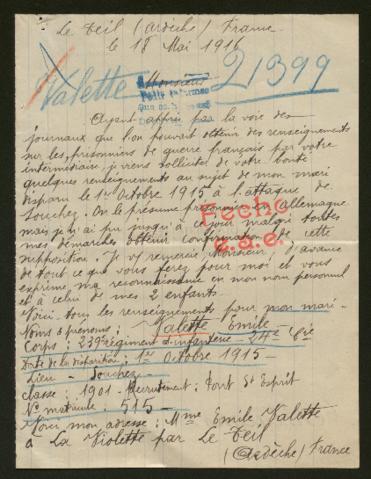 Le Teil (Ardèche) France
le 18 Mai 1916
Valette
Monsieur
21399
Ayant appris par la voie des
journaux que l'on pouvait obtenir des renseignements
sur les prisonniers de guerre français par votre
intermédiaire je viens solliciter de votre bonté
quelques renseignements au sujet de mon mari
disparu le 1er Octobre 1915 à l'attaque de
Souchez. On le présume prisonnier en Allemagne
mais je n'ai pu jusqu'à ce jour malgré toutes
mes démarches obtenir confirmation de cette
supposition. Je vous remercie Monsieur d'avance
de tout ce que vous ferez pour moi et vous
exprime ma reconnaissance en mon nom personnel
et à celui de mes 2 enfants.
Fiche
e.a.e.
Voici tous les renseignements pour mon mari -
Noms & prénoms : Valette Emile
Corps : 239 Régiment d'infanterie - 24e Cie
Date de la disparition : 1er Octobre 1915 -
Lieu - Souchez -
classe : 1901 - Recrutement : Pont St Esprit
No matricule : 515 -
Voici mon adresse : Mme Emile Valette
à La Violette par Le Teil
(Ardèche) France